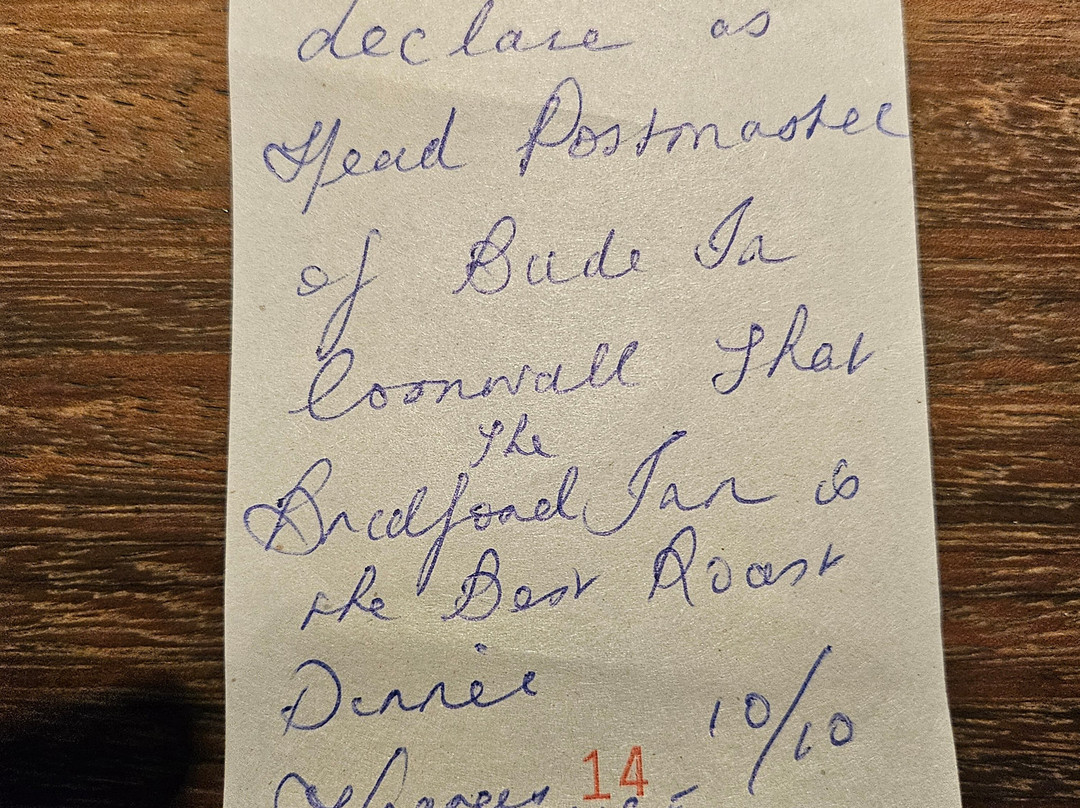 declare as
Head Postmaster
of Bude In
Cornwall That
The
Bradford Inn is
the Best Roast
Dinner
10/10
14